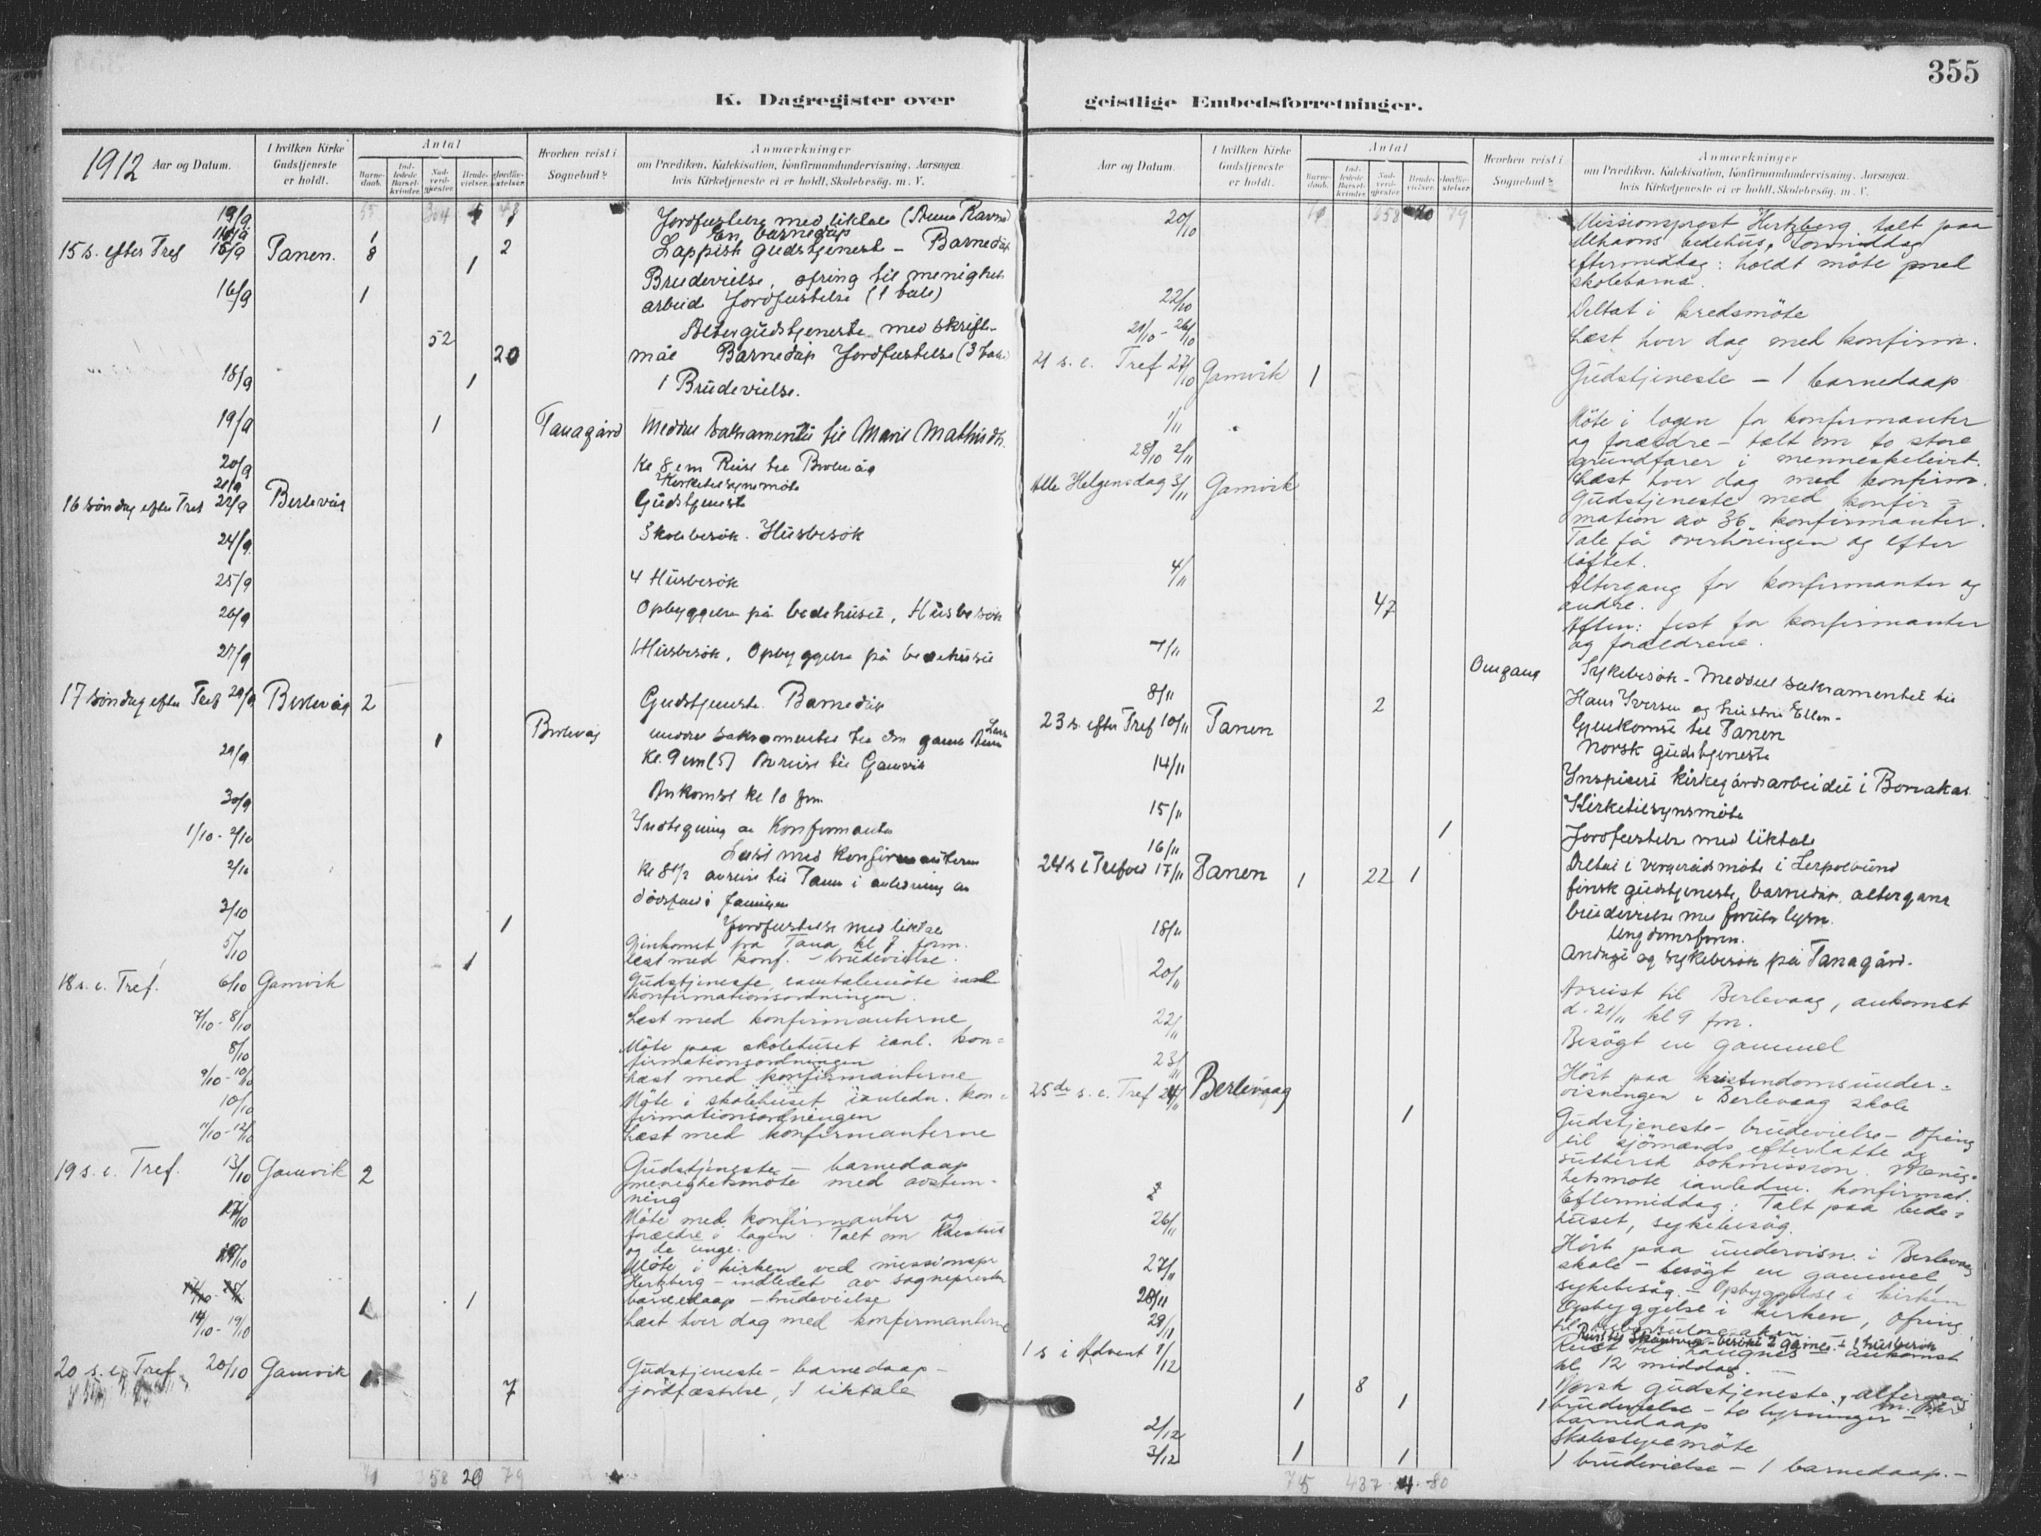 355
K. Dagregister over
geistlige Embedsforretninger.
1912 Aar og Datum.
I hvilken Kirke Gudstjeneste er holdt.
Antal
Barnedaab.
Indledede Barselkvinder.
Nadverdgjester.
Brudevielser.
Jordfæstelser.
Hvorhen reist i Sognebud?
Anmærkninger
om Prædiken, Katekisation, Konfirmandundervisning, Aarsagen
hvis Kirketjeneste ei er holdt, Skolebesøg, m. V.
13/9 55 304 48 Jordfæstelse med liktale
1 En barnedåp
15 s. efter Tref 15/9 Tanen. 8 2 Lappisk gudstjeneste - Barnedåp
1 Brudevielse, ofring til menighet
16/9 1 arbeide Jordfæstelse (1 tale)
Altergudstjeneste med skrifte-
52 20 mål Barnedåp Jordfæstelse
18/9 1 1 Brudevielse.
19/9 1 Tanagård Meddel sakramentet til Marit
20/9 Kl 8 em Reise til Berlevåg
21/9 Kirketilsynsmöte
16 söndag efter Tref 22/9 Berlevåg Gudstjeneste
24/9 Skolebesök. Husbesök
25/9 4 Husbesök
26/9 Opbyggelse på bedehuset, Husbesök
27/9 1 Husbesök, Opbyggelse på bedehuset
17 söndag efter Tref 29/9 Berlevåg 2 Gudstjeneste. Barnedåp
1 Berlevåg meddel sakramentet til den gamle
29/9 Kl. 9 em Avreise til Gamvik
30/9 Ankomst kl 10 fm
1/10 - 2/10 Indtegning av Konfirmanter
Læst med konfirmanterne
2/10 Kl 8 1/2 avreise til Tana i anledning av
dödsfald i familjen
3/10 1 Jordfæstelse med liktale
5/10 Gjenkomst fra Tana kl 7 form.
1 Læst med konf. - brudevielse.
18 s. e. Tref. 6/10 Gamvik Gudstjeneste, samtalemöte ianl
konfirmationsordningen.
7/10 - 8/10 Læst med konfirmanterne
8/10 Möte paa skolehuset ianl. kon=
firmationsordningen
9/10 - 10/10 Læst med konfirmanterne
10/10 Möte i skolehuset ianledn. kon=
firmationsordningen
11/10 - 12/10 Læst med konfirmanterne
19 s. e. Tref. 13/10 Gamvik 2 Gudstjeneste - barnedaap
menighetsmöte med avstem-
ning
17/10 Möte med konfirmanter og
forældre i logen. Talt om Kristus
og de unge.
Möte i kirken ved missionspr
Hertzberg - indledet av sogneprester
1 1 barnedaap - brudevielse
14/10 - 19/10 Læst hver dag med konfirmanterne
20 s. e. Tref 20/10 Gamvik 1 Gudstjeneste - barnedaap -
7 jordfæstelse, 1 liktale
71 358 20 79
Aar og Datum.
I hvilken Kirke Gudstjeneste er holdt.
Antal
Barnedaab.
Indledede Barselkvinder.
Nadverdgjester.
Brudevielser.
Jordfæstelser.
Hvorhen reist i Sognebud?
Anmærkninger
om Prædiken, Katekisation, Konfirmandundervisning, Aarsagen
hvis Kirketjeneste ei er holdt, Skolebesøg, m. V.
20/10 71 358 20 79 Missionsprest Hertzberg talt paa
Mehavns bedehus, Formiddag
eftermiddag: holdt möte med
skolebarna.
22/10 Deltat i kredsmöte
21/10 - 26/10 Læst hver dag med konfirm.
21 s. e. Tref 27/10 Gamvik 1 Gudstjeneste - 1 barnedaap
1/11 Möte i logen for konfirmanter
og forældre - talt om to store
grundfarer i menneskelivet.
28/10 2/11 Læst hver dag med konfirm.
Alle Helgensdag 3/11 Gamvik Gudstjeneste med konfir=
mation av 36 konfirmanter.
Tale få overhöringen og efter
löftet.
4/11 Altergang for konfirmanter og
47 andre.
Aften: fest for konfirmanter
og forældrene.
7/11 Omgang Sykebesök - Meddel sakramentet til
8/11 2 Hans Iversen og hustru Ellen -
Gjenkomst til Tanen
23 s. efter Tref 10/11 Tanen Norsk gudstjeneste
14/11 Inspisert kirkegårdsarbeidet i Bonakas
15/11 Kirketilsynsmöte
1 Jordfæstelse med liktale
16/11 Deltat i vergerådsmöte i Leirpollbund
24 s e Trefold 17/11 Tanen 1 22 1 finsk gudstjeneste, barnedåp, altergang
brudevielse med forutg lysn.
18/11 Ungdomsforen.
Andagt og sykebesök på Tanagård.
20/11 Avreist til Berlevaag, ankomst
d. 21/11 kl 9 fm.
22/11 Besögt en gammel
23/11 Hört paa kristendomsunder=
visningen i Berlevaag skole
25de s. e. Tref 24/11 Berlevaag 1 Gudstjeneste - brudevielse - ofring
til sjömænds efterlatte og
luthersk bokmission. Menig-
hetsmöte ianledn. konfirmat.
Eftermiddag: Talt paa bede=
huset, sykebesög.
26/11 Hört paa undervisn. i Berlevaag
skole - besögt en gammel
27/11 sykebesög. - Opbyggelse i kirken
28/11 Opbyggelse i kirken, ofring
29/11 til
1 s i Advent 1/12 Reist til Langnes - ankomst
kl 12 middag.
8 Norsk gudstjeneste, altergang
1 1 1 brudevielse - to lysninger -
barnedaap
2/12 Skolestyremöte
3/12 1 1 1 brudevielse - 1 barnedaap. -
75 437 80